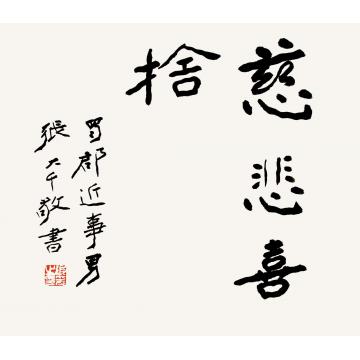 慈悲喜
捨
蜀郡近事男
張大千敬書